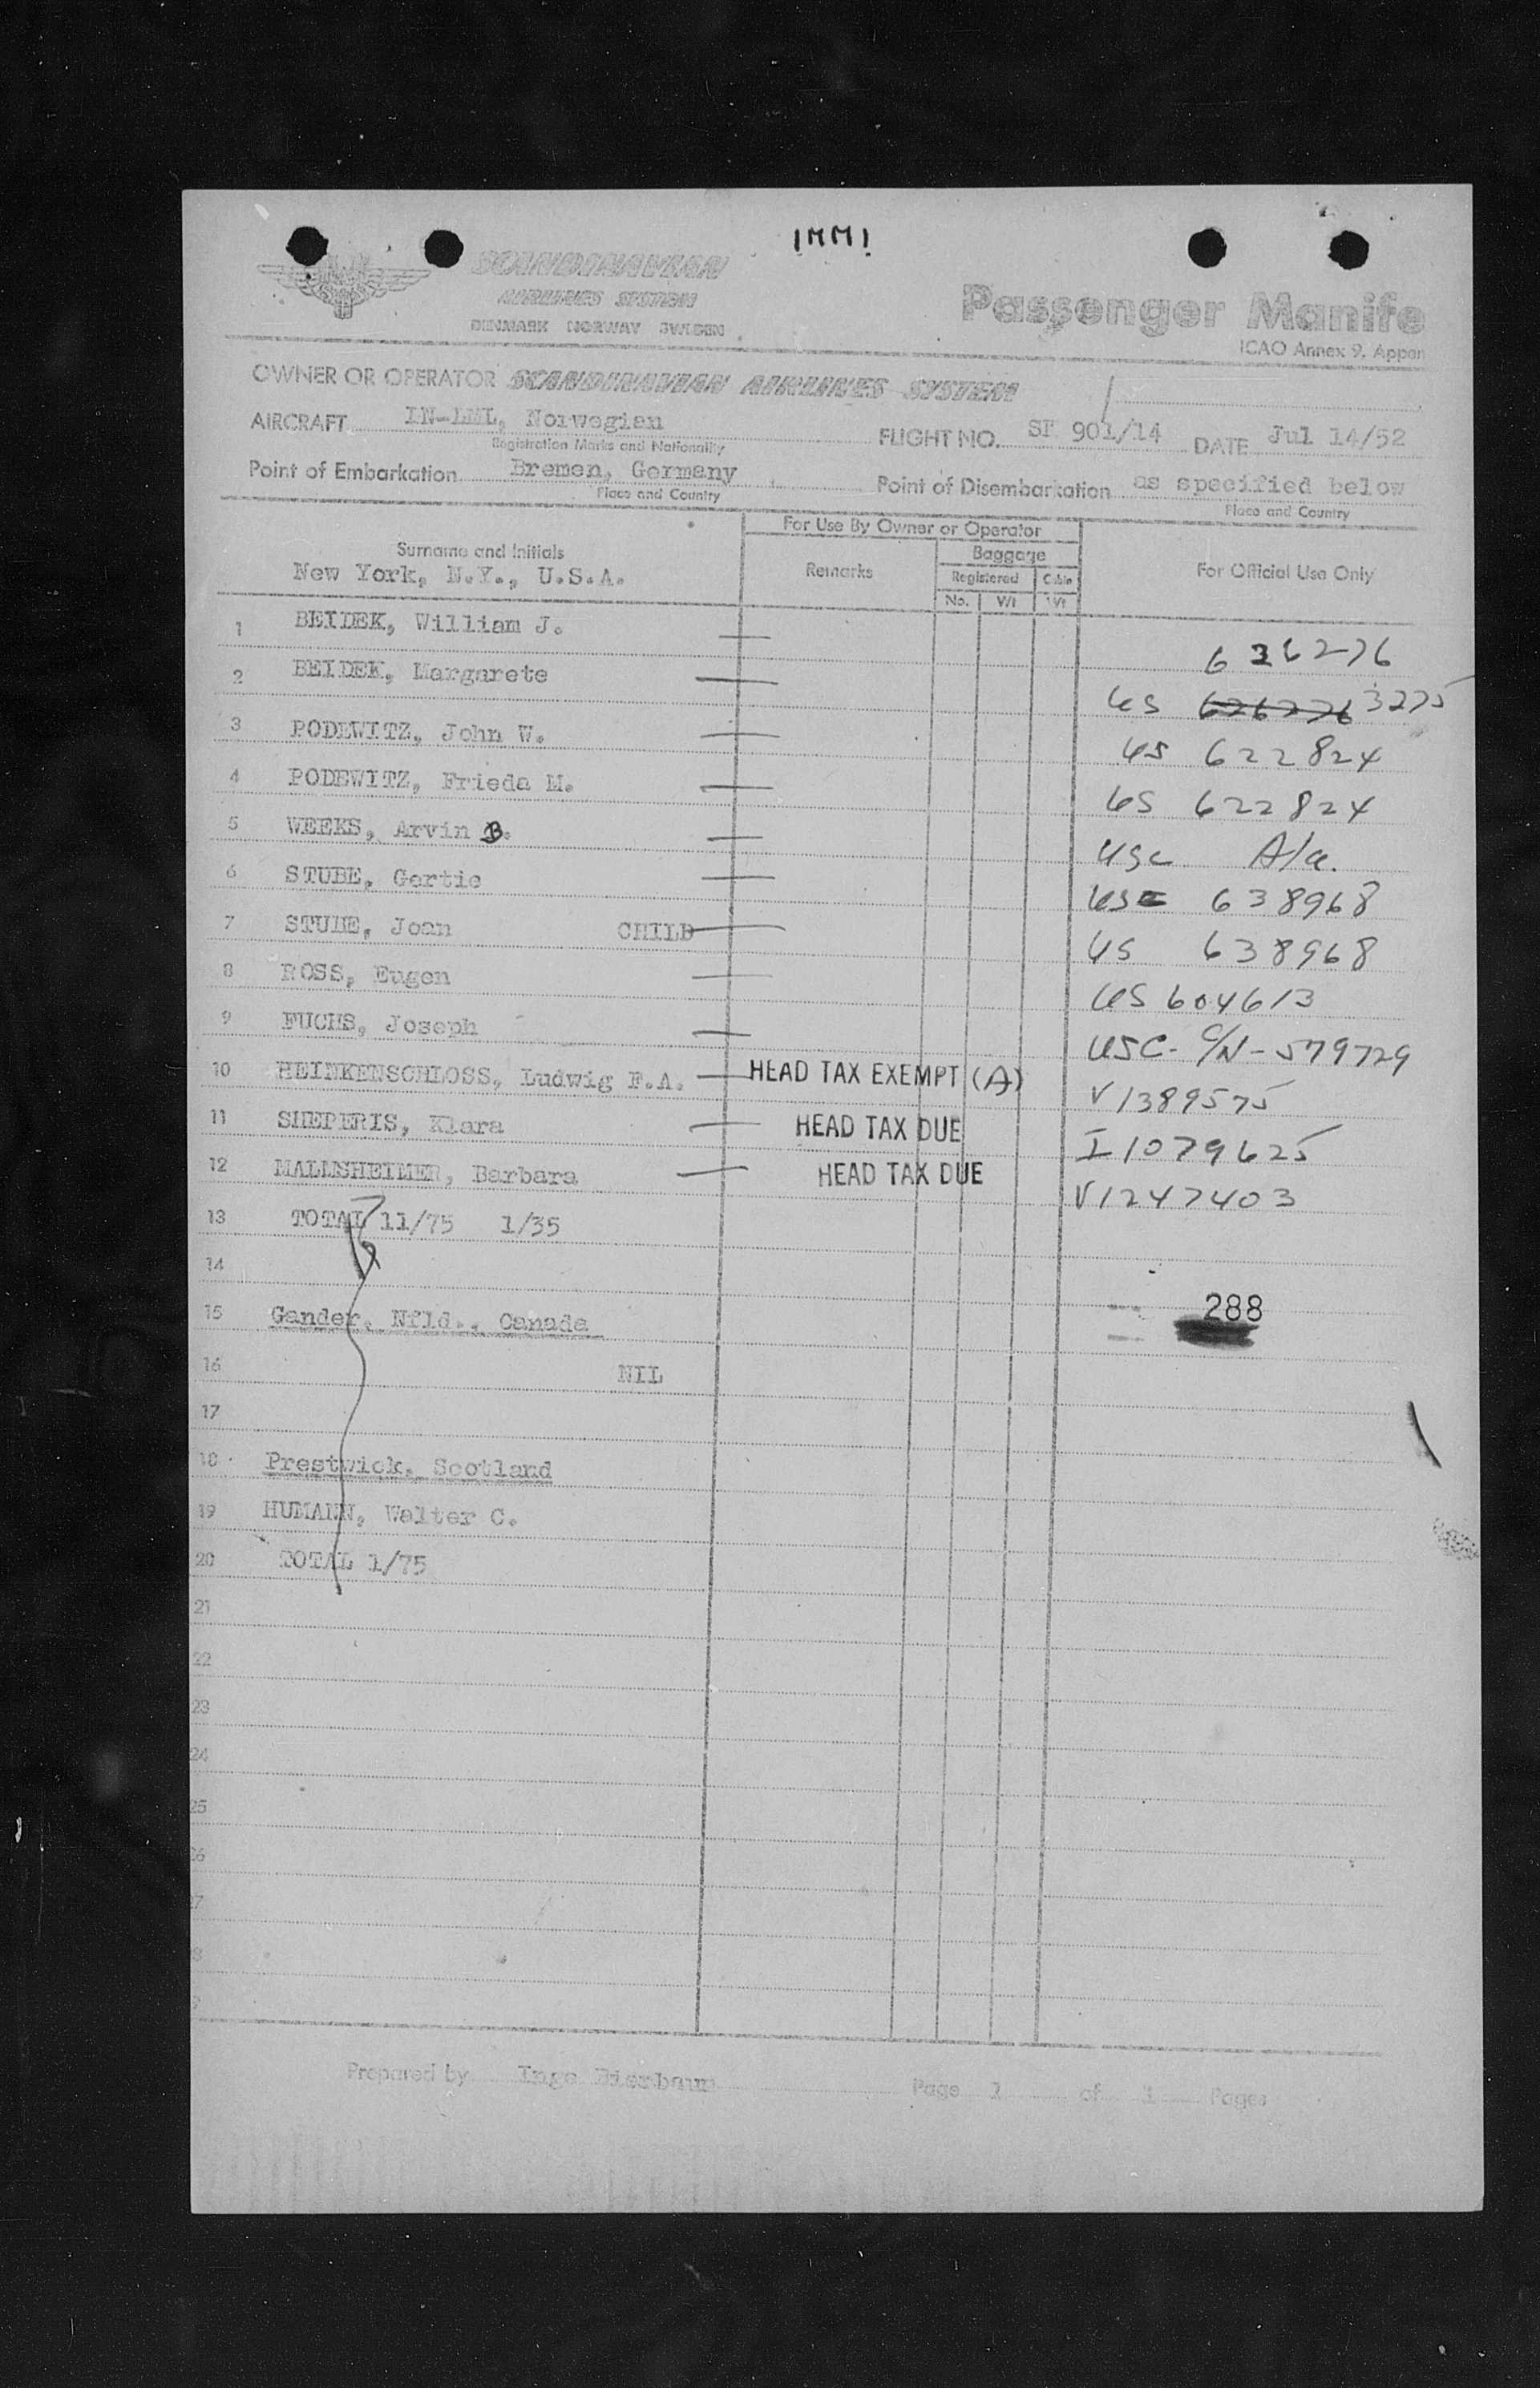 IMMI
SCANDINAVIAN
AIRLINES SYSTEM
DENMARK NORWAY SWEDEN
Passenger Manife
ICAO Annex 9, Appen
OWNER OR OPERATOR SCANDINAVIAN AIRLINES SYSTEM
AIRCRAFT Norwegian FLIGHT NO. SK 901/14 DATE Jul 14/52
Registration Marks and Nationality
Point of Embarkation Bremen, Germany Point of Disembarkation as specified below
Place and Country Place and Country
For Use By Owner or Operator
Surname and Initials Remarks Baggage For Official Use Only
New York, N.Y., U.S.A. Registered Cabin
No. Wt Wt
1 BEIDEK, William J. 636276
2 BEIDEK, Margarete US 626276 3275
3 PODEWITZ, John W. US 622824
4 PODEWITZ, Frieda M. US 622824
5 WEEKS, Arvin B. USC A/a.
6 STUBE, Gertie USC 638968
7 STUBE, Joan CHILD US 638968
8 ROSS, Eugen US 604613
9 FUCHS, Joseph USC - C/N - 579729
10 HEINKENSCHLOSS, Ludwig F.A. HEAD TAX EXEMPT (A) V1389575
11 SHEPERIS, Klara HEAD TAX DUE I1079625
12 MALMSHEIMER, Barbara HEAD TAX DUE V1247403
13 TOTAL 11/75 1/35
14
15 Gander, Nfld., Canada 288
16 NIL
17
18 Prestwick, Scotland
19 HUMANN, Walter C.
20 TOTAL 1/75
21
22
23
24
25
Prepared by Inge Bierbaum Page 1 of 1 Pages